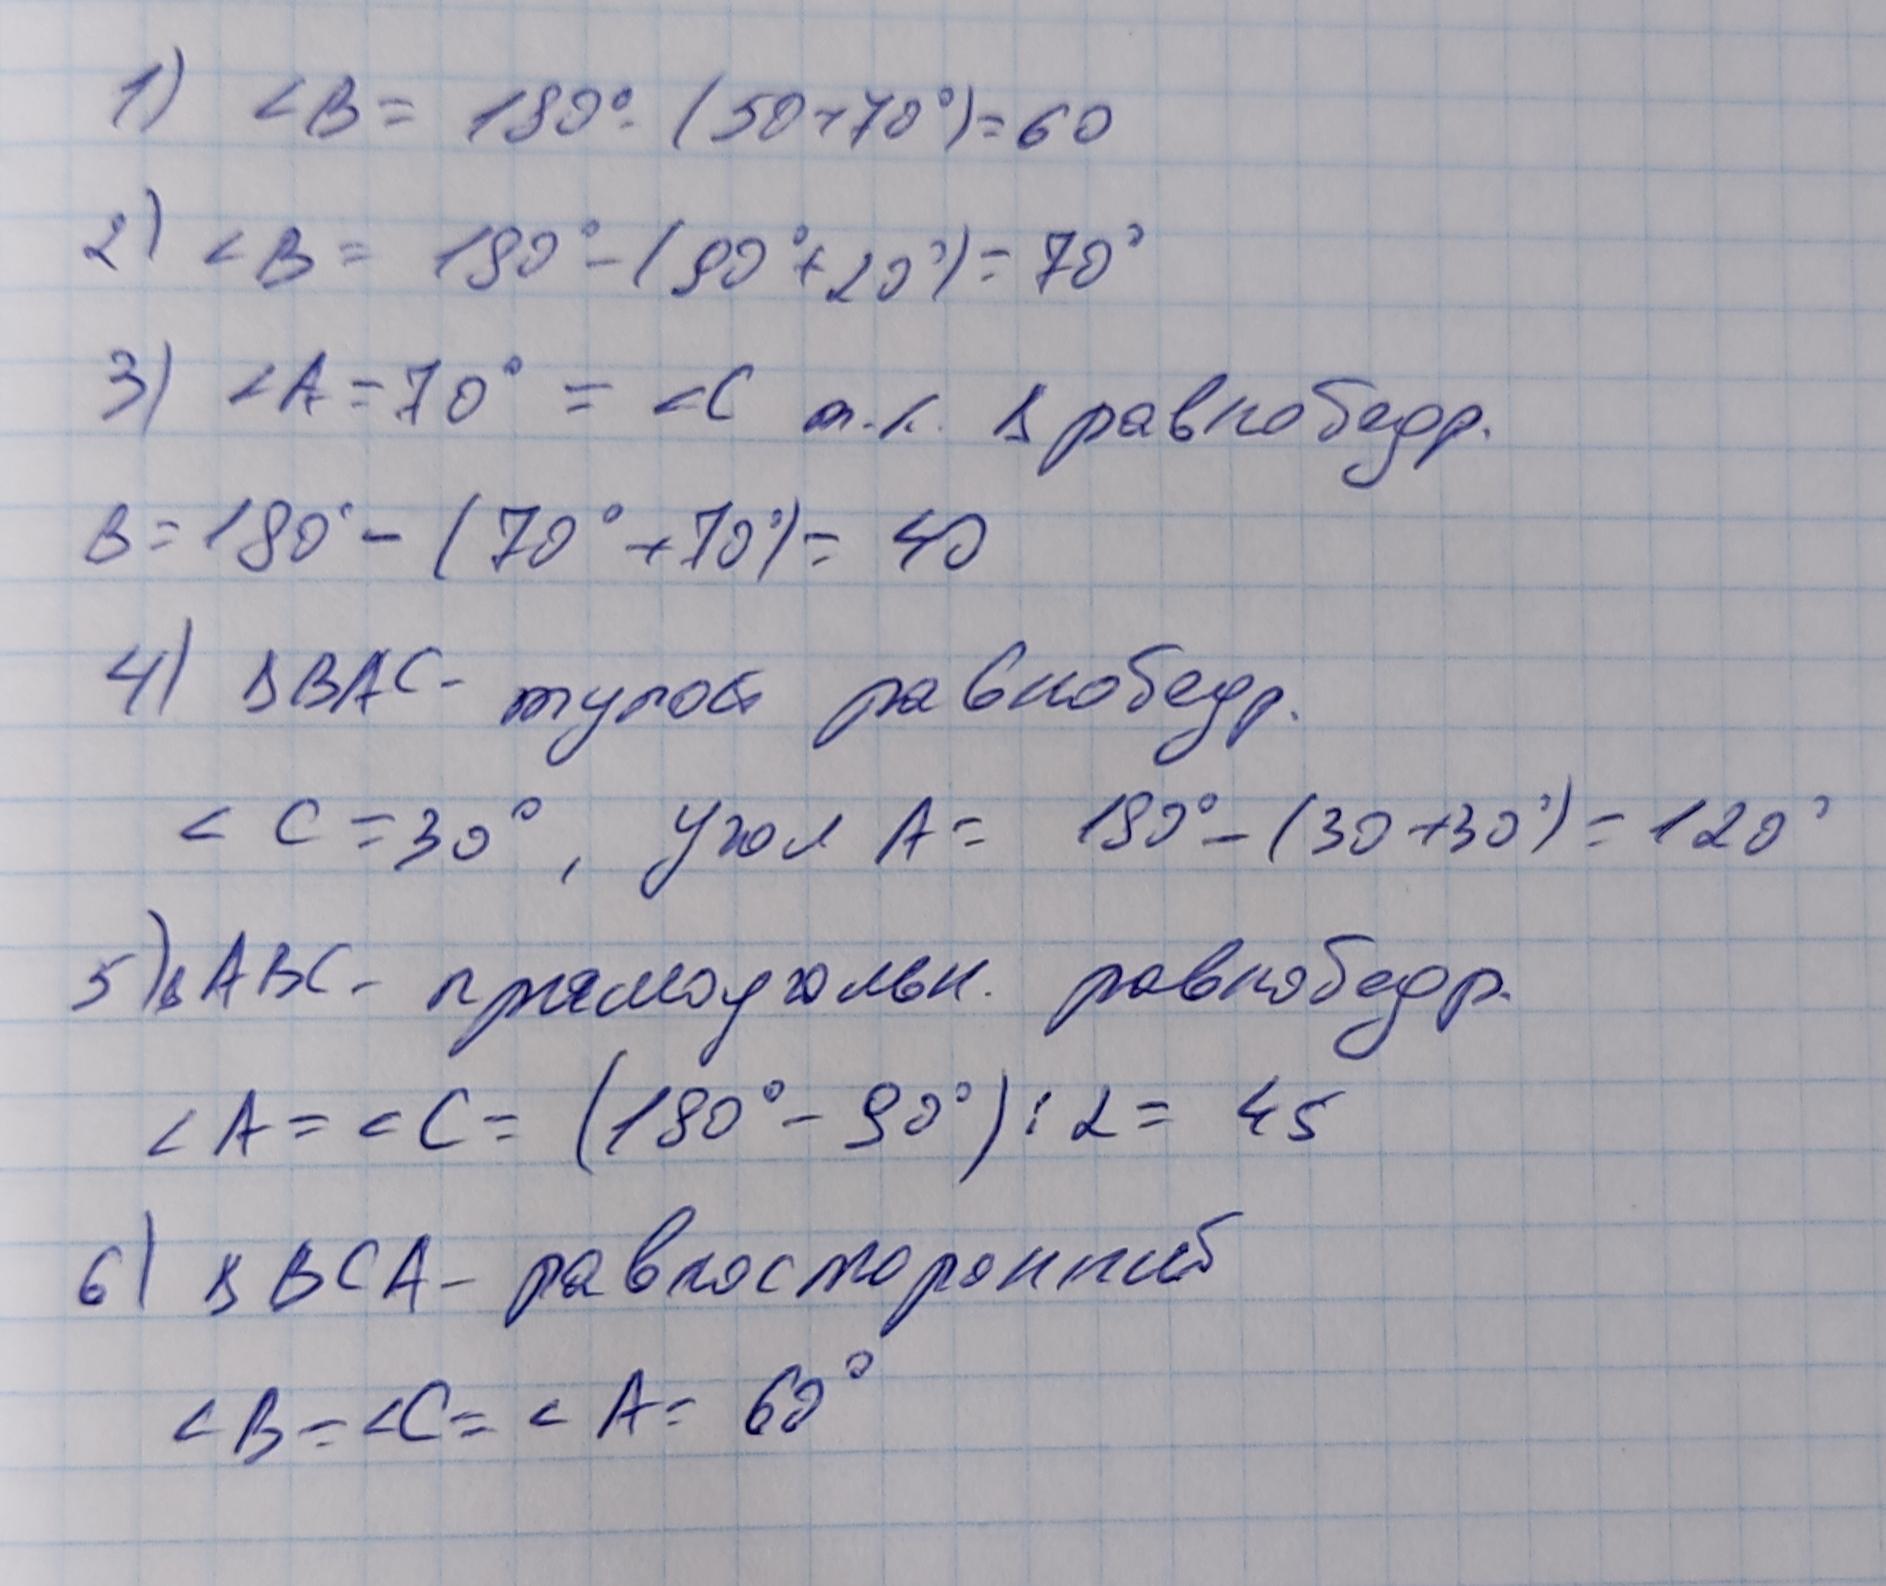 1) ∠B= 180°-(50+70°)=60
2) ∠B= 180°-(90°+20°)=70°
3) ∠A=70°=∠C т.к. Δ равнобедр.
B=180°-(70°+70°)= 40
4) ΔBAC- тупоу равнобедр.
∠C=30°, угол A= 180°-(30+30°)=120°
5) ΔABC- прямоугольн. равнобедр.
∠A=∠C= (180°-90°):2= 45
6) ΔBCA- равносторонний
∠B=∠C=∠A= 60°